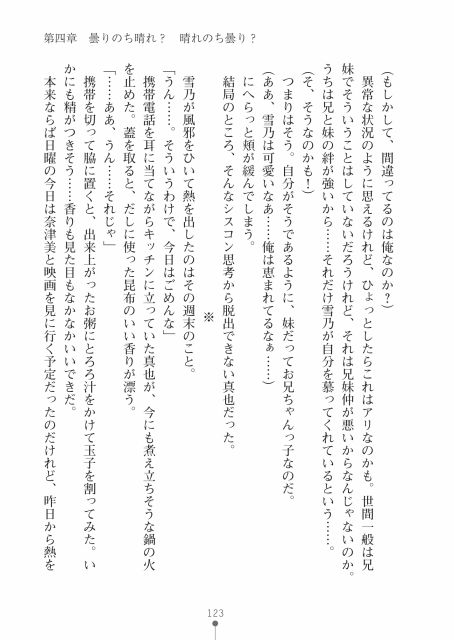 第四章　曇りのち晴れ？　晴れのち曇り？
（もしかして、間違ってるのは俺なのか？）
異常な状況のように思えるけれど、ひょっとしたらこれはアリなのかも。世間一般は兄
妹でそういうことはしていないだろうけれど、それは兄妹仲が悪いからなんじゃないのか。
うちは兄と妹の絆が強いから……それだけ雪乃が自分を慕ってくれているという……。
（そ、そうなのかも！）
つまりはそう。自分がそうであるように、妹だってお兄ちゃんっ子なのだ。
（ああ、雪乃は可愛いなあ……俺は恵まれてるなぁ……）
にへらっと頬が緩んでしまう。
結局のところ、そんなシスコン思考から脱出できない真也だった。
※
雪乃が風邪をひいて熱を出したのはその週末のこと。
「うん……。そういうわけで、今日はごめんな」
携帯電話を耳に当てながらキッチンに立っていた真也が、今にも煮え立ちそうな鍋の火
を止めた。蓋を取ると、だしに使った昆布のいい香りが漂う。
「……ああ、うん……それじゃ」
携帯を切って脇に置くと、出来上がったお粥にとろろ汁をかけて玉子を割ってみた。い
かにも精がつきそう……香りも見た目もなかなかいいできだ。
本来ならば日曜の今日は奈津美と映画を見に行く予定だったのだけれど、昨日から熱を
123